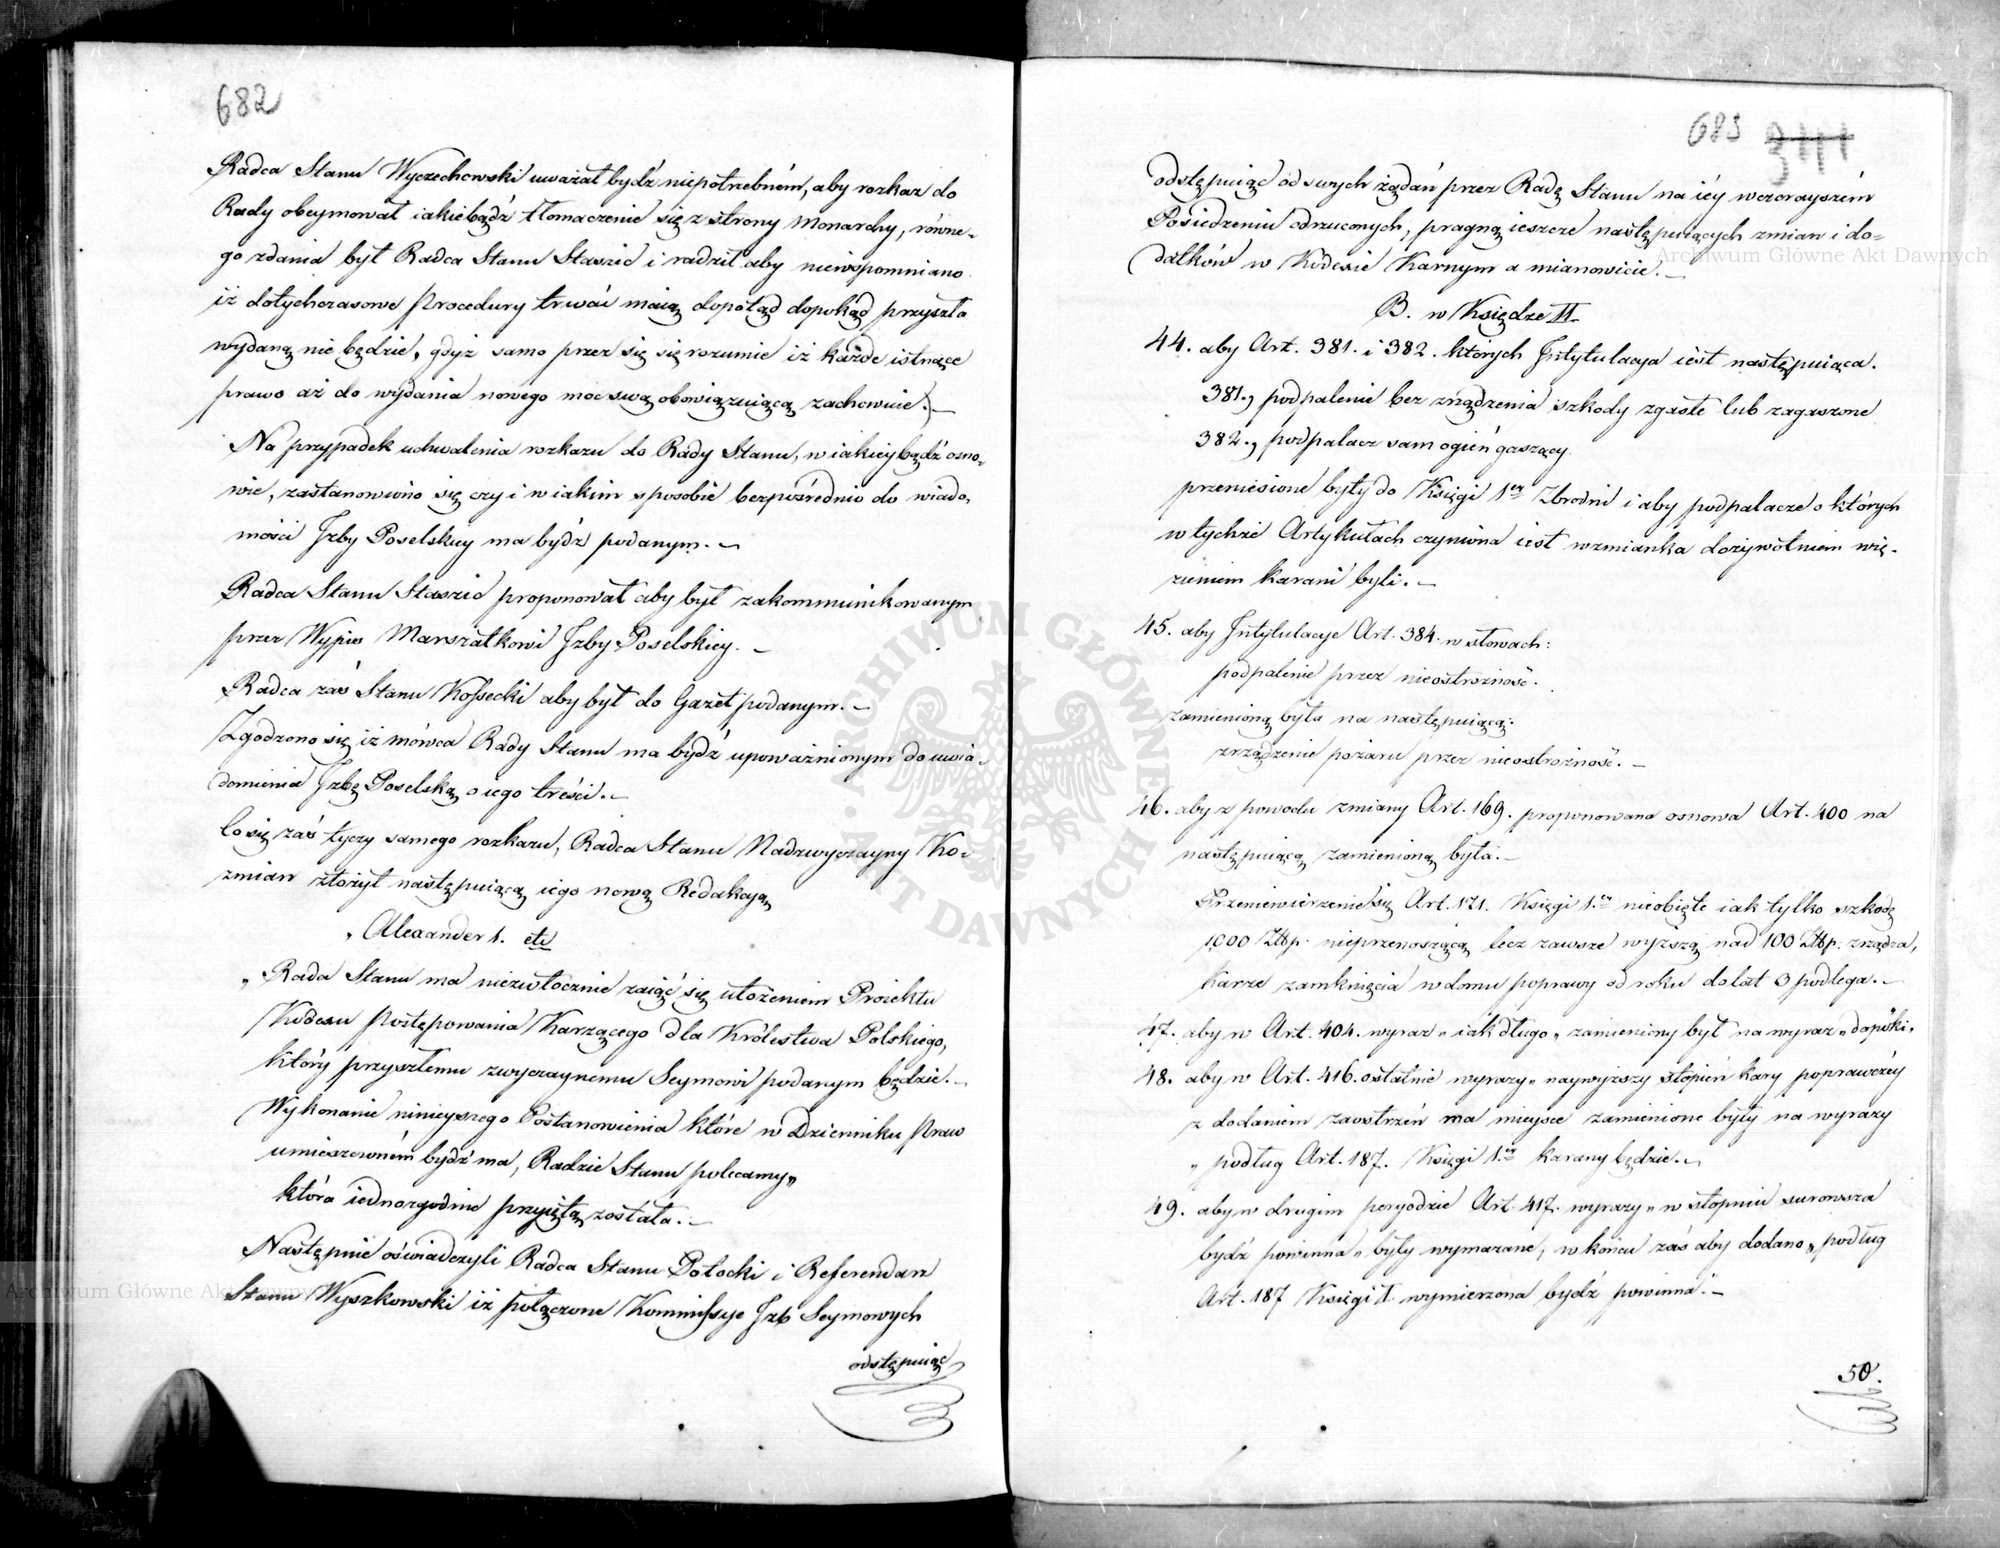 682
Radca Stanu Wyczechowski uważał bydź niepotrzebném, aby rozkaz do
Rady obeymował iakiebądź tłomaczenie się z strony Monarchy, równe-
go zdania był Radca Stanu Staszic i radził aby niewspomniano
iż dotychczasowe Procedury trwać maią dopotąd dopokąd przyszła
wydaną nie będzie, gdyż samo przez się się rozumie iż każde istnące
prawo aż do wydania nowego moc swą obowiązuiącą zachowuie.
Na przypadek uchwalenia rozkazu do Rady Stanu, w iakieybądź osno-
wie, zastanowiono się czy i w iakim sposobie bezpośrednio do wiado-
mości Izby Poselskiey ma bydź podanym.
Radca Stanu Staszic proponował aby był zakommunikowanym
przez Wypis Marszałkowi Izby Poselskiey.
Radca zaś Stanu Kossecki aby był do Gazet podanym.
Zgodzono się iż mówca Rady Stanu ma bydź upoważnionym do uwia-
domienia Izbę Poselską o iego treści.
Co się zaś tyczy samego rozkazu, Radca Stanu Nadzwyczayny Ko-
zmian złożył następuiącą iego nową Redakcyą
„Alexander I. etc
„Rada Stanu ma niezwłocznie zaiąć się ułożeniem Proiektu
Kodexu Postępowania Karzącego dla Królestwa Polskiego,
który przyszłemu zwyczaynemu Seymowi podanym będzie.
Wykonanie ninieyszego Postanowienia które w Dzienniku Praw
umieszczoném bydź ma, Radzie Stanu polecamy„
która iednozgodnie przyiętą została.
Następnie oświadczyli Radca Stanu Potocki i Referendarz
Stanu Wyszkowski iż połączone Kommissye Izb Seymowych
odstępuiąc
683 341
odstępuiąc od swych żądań przez Radę Stanu na iéy wczorayszém
Posiedzeniu odrzuconych, pragną ieszcze następuiących zmian i do-
datków w Kodexie Karnym a mianowicie.
B. w Księdze II.
44. aby Art. 381. i 382. których Intytulacya iest następuiąca.
381., podpalenie bez zrządzenia szkody zgasłe lub zagaszone
382., podpalacz sam ogień gaszący.
przeniesione były do Księgi 1er Zbrodni i aby podpalacze o których
w tychże Artykułach czyniona iest wzmianka dożywotniem wię-
zieniem karani byli.
45. aby Intytulacye Art. 384. w słowach:
podpalenie przez nieostrożność.
zamienioną była na następuiącą:
zrządzenie pożaru przez nieostrożność.
46. aby z powodu zmiany Art. 169. proponowana osnowa Art. 400 na
następuiącą zamienioną była.
Przeniewierzenie się Art. 171. Księgi 1.er nieobięte iak tylko szkodę
1000 Złtp. nieprzenoszącą lecz zawsze wyższą nad 100 Złtp. zrządza,
karze zamknięcia w domu poprawy od roku do lat 3 podlega.
47. aby w Art. 404. wyraz „iak długo„ zamieniony był na wyraz „dopóki„
48. aby w Art. 416. ostatnie wyrazy „naywyższy stopień kary poprawczéy
z dodaniem zaostrzeń ma mieysce zamienione były na wyrazy
„podług Art. 187. Księgi 1.er karany będzie.
49. aby w drugim peryodzie Art. 417. wyrazy „w stopniu surowsza
bydź powinna„ były wymazane, w końcu zaś aby dodano „podług
Art. 187 Księgi I. wymierzona bydź powinna.
50.
Archiwum Główne Akt Dawnych
Archiwum Główne Akt Dawnych
ARCHIWUM GŁÓWNE AKT DAWNYCH